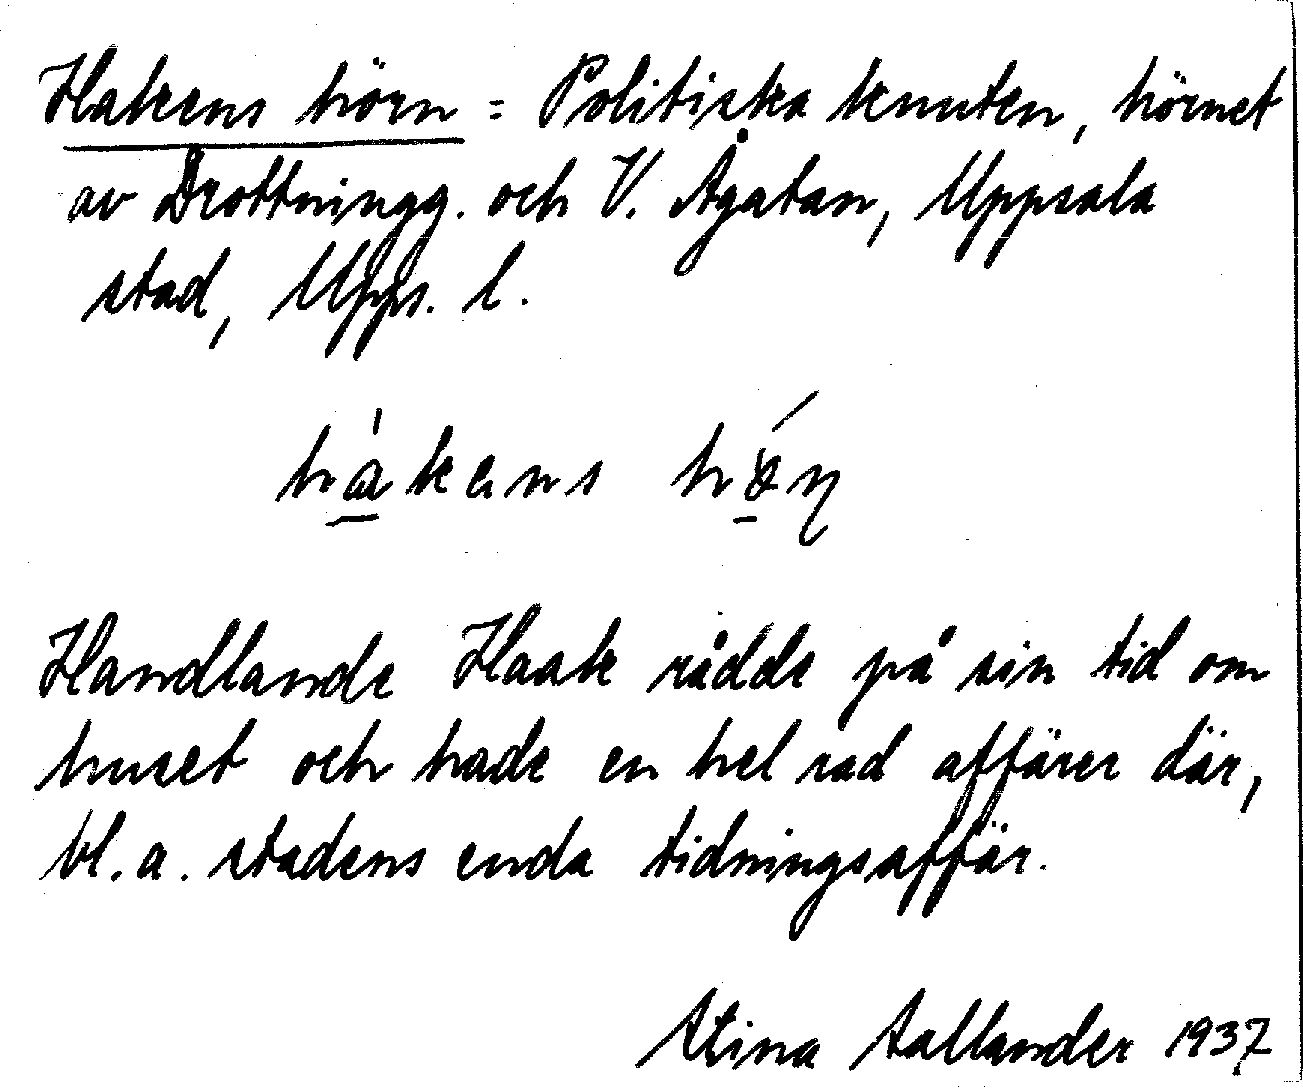 Hakens hörn = Politiska knuten, hörnet
av Drottningg. och V. Ågatan, Uppsala
stad, Upps. l.
hakens hörn
Handlande Haak rådde på sin tid om
huset och hade en hel rad affärer där,
bl. a. stadens enda tidningsaffär.
Stina Sallander 1937